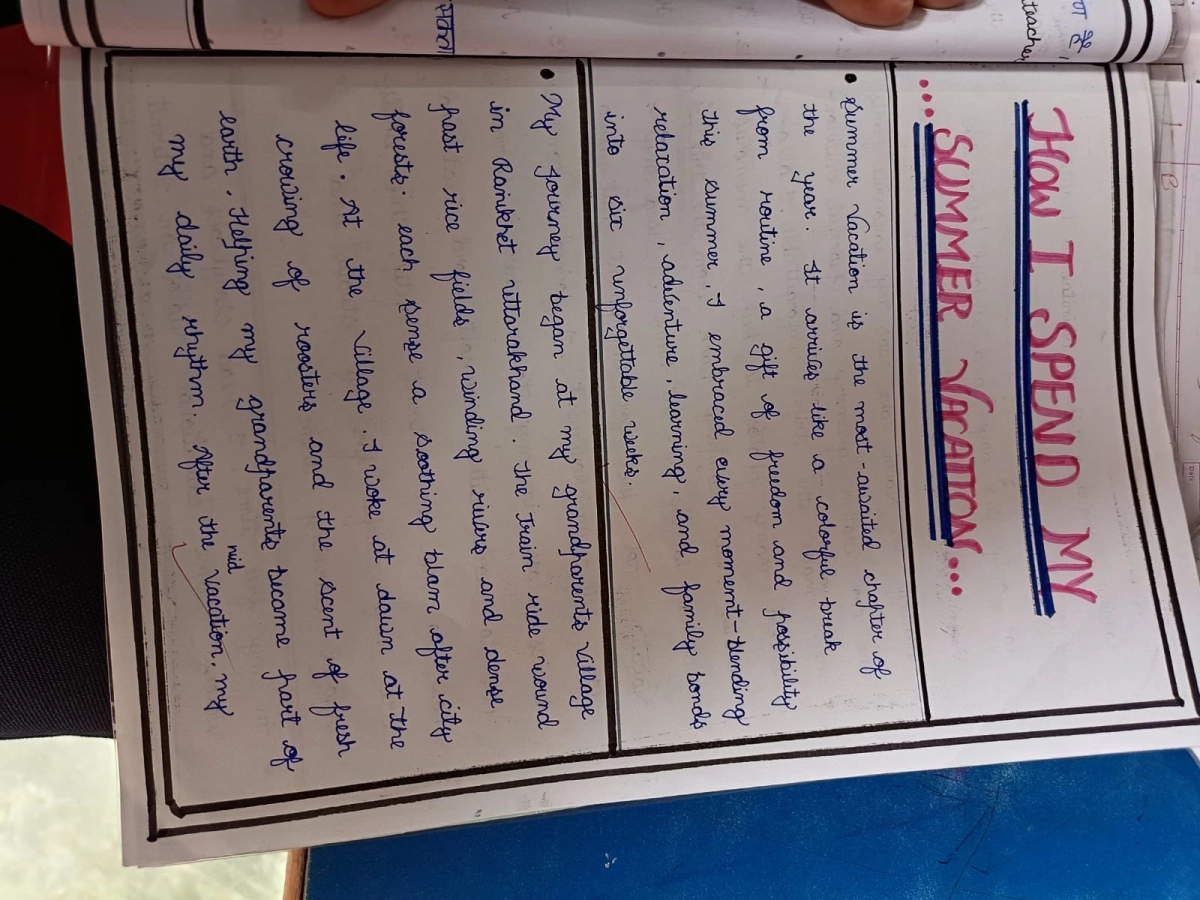 HOW I SPEND MY
...SUMMER VACATION...
• Summer Vacation is the most-awaited chapter of
the year. It arrives like a colorful break
from routine, a gift of freedom and possibility
this summer, I embraced every moment-blending
relaxation, adventure, learning, and family bonds
into six unforgettable weeks.
• My journey began at my grandparents village
in Ranikhet uttarakhand. The train ride wound
past rice fields, winding rivers and dense
forests. each sense a soothing blam after city
life. At the village. I woke at dawn at the
crowing of roosters and the scent of fresh
earth. Helping my grandparents become part of
my daily rhythm. After the mid vacation, my
teacher